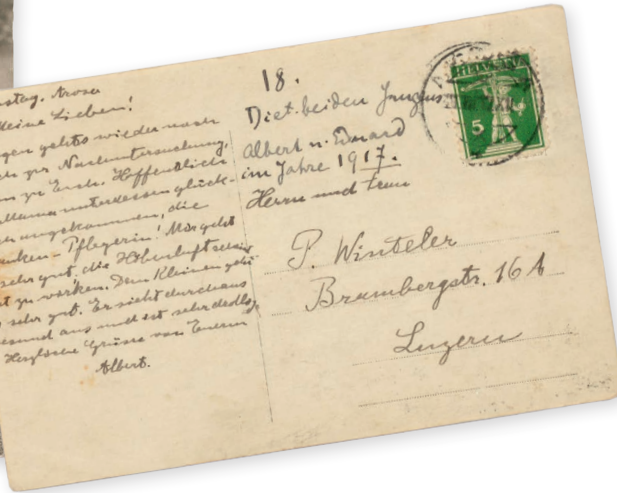 Arosa
Meine Lieben!
gehts wieder nach
zur Nachuntersuchung,
zu Euch. Hoffentlich
Mama unterdessen glück-
angekommen, die
Pflegerin! Mir geht
sehr gut, die Höhenluft scheint
zu wirken. Dem Kleinen geht
sehr gut. Er sieht durchaus
gesund aus und ist sehr
Herzliche Grüsse von Euerem
Albert.
18.
beiden Jungens
Albert u. Eduard
im Jahre 1917.
Herrn und Frau
P. Winteler
Brambergstr. 16 A
Luzern
HELVETIA
5
IX